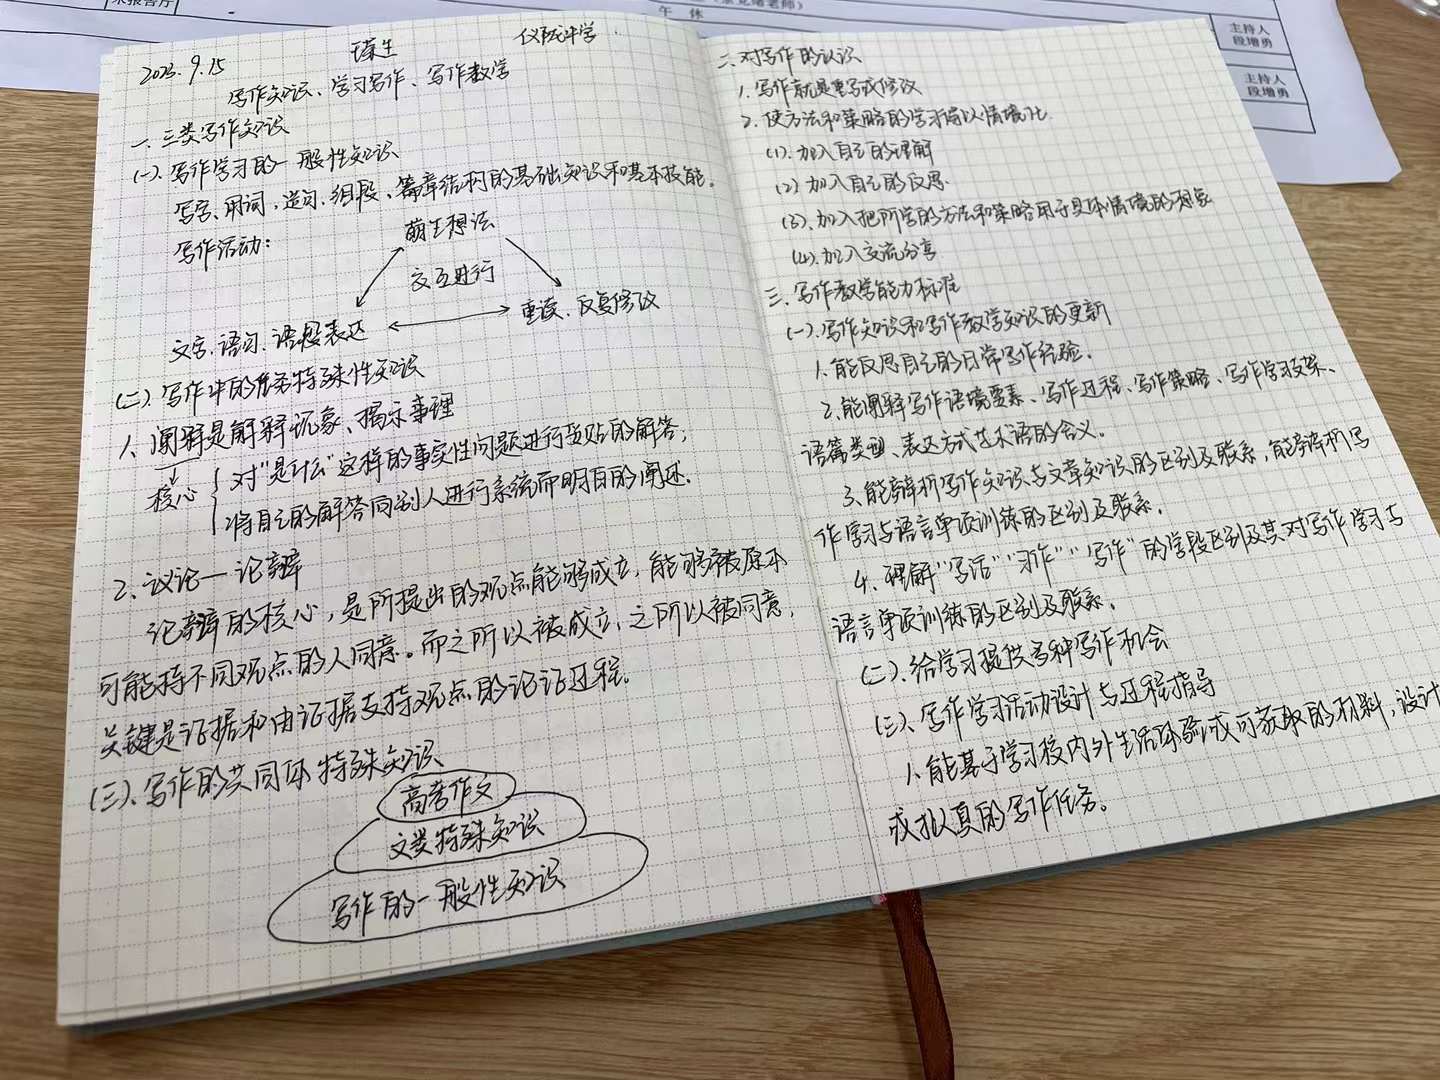 午 休
主持人
段增勇
主持人
段增勇
2023.9.15
仪陇中学
写作知识、学习写作、写作教学
一、三类写作知识
(一).写作学习的一般性知识
写字、用词、造句、组段、篇章结构的基础知识和基本技能。
写作活动:
萌生想法
交互进行
文字、语句、语段表达
重读、反复修改
(二).写作中的任务特殊性知识
1、阐释是解释现象、揭示事理
核心
对"是什么"这样的事实性问题进行妥贴的解答,
将自己的解答向别人进行系统而明白的阐述.
2、议论—论辩
论辩的核心,是所提出的观点能够成立,能够被原本
可能持不同观点的人同意。而之所以被成立,之所以被同意,
关键是证据和由证据支持观点的论证过程.
(三).写作的共同体特殊知识
高考作文
文类特殊知识
写作的一般性知识
二、对写作的认识
1.写作就是重写或修改
2.使方法和策略的学习得以情境化.
(1).加入自己的理解
(2)加入自己的反思.
(3).加入把所学的方法和策略用于具体情境的想象
(4).加入交流分享
三、写作教学能力标准
(一).写作知识和写作教学知识的更新
1.能反思自己的日常写作经验.
2.能阐释写作语境要素、写作过程、写作策略、写作学习支架、
语篇类型、表达方式艺术语的含义。
3.能辩析写作知识与文章知识的区别及联系,能辩析写
作学习与语言单项训练的区别及联系.
4.理解"写话""习作""写作"的学段区别及其对写作学习与
语言单项训练的区别及联系.
(二).给学习提供多种写作机会
(三).写作学习活动设计与过程指导
1.能基于学习校内外生活体验或可获取的材料,设计
或拟真的写作任务。